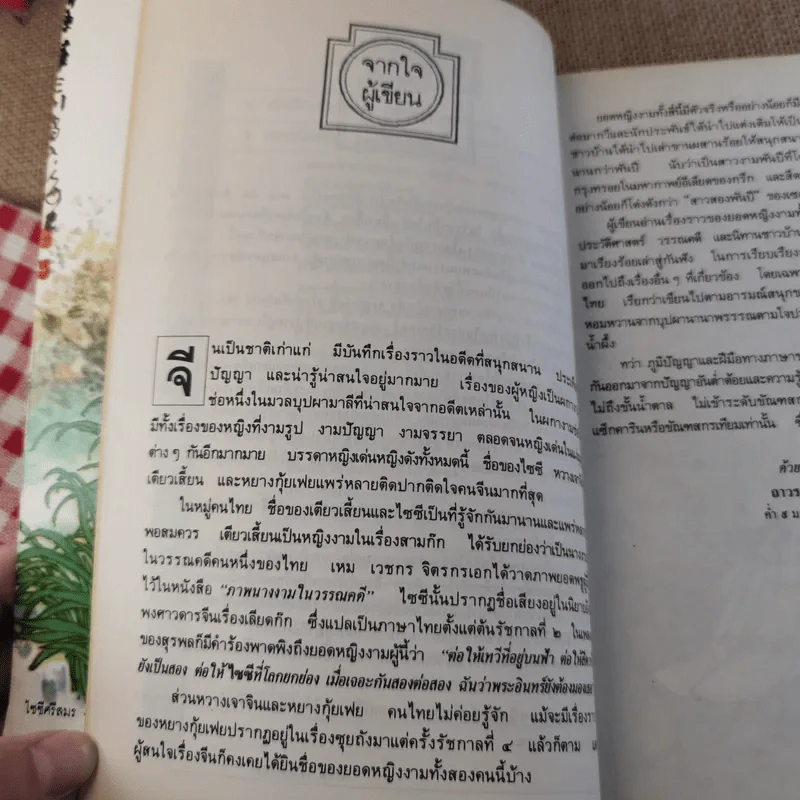 จากใจ
ผู้เขียน
จีนเป็นชาติเก่าแก่ มีบันทึกเรื่องราวในอดีตที่สนุกสนาน
ปัญญา และน่ารู้น่าสนใจอยู่มากมาย เรื่องของผู้หญิงเป็น
ช่อหนึ่งในมวลบุปผามาลีที่น่าสนใจจากอดีตเหล่านั้น
มีทั้งเรื่องของหญิงที่งามรูป งามปัญญา งามจรรยา ตลอดจนหญิงเด่นใน
ต่างๆ กันอีกมากมาย บรรดาหญิงเด่นหญิงดังทั้งหมดนี้ ชื่อของไซซี
เตียวเสี้ยน และหยางกุ้ยเฟยแพร่หลายติดปากติดใจคนจีนมากที่สุด
ในหมู่คนไทย ชื่อของเตียวเสี้ยนและไซซีเป็นที่รู้จักกันมานานและ
พอสมควร เตียวเสี้ยนเป็นหญิงงามในเรื่องสามก๊ก ได้รับยกย่องว่าเป็น
ในวรรณคดีคนหนึ่งของไทย เหม เวชกร จิตรกรเอกได้วาดภาพยอด
ไว้ในหนังสือ "ภาพนางงามในวรรณคดี" ไซซีนั้นปรากฏชื่อเสียงอยู่ใน
พงศาวดารจีนเรื่องเลียดก๊ก ซึ่งแปลเป็นภาษาไทยตั้งแต่ต้นรัชกาลที่ ๒
ของสุรพลก็มีคำร้องพาดพิงถึงยอดหญิงงามผู้นี้ว่า "ต่อให้เทวีที่อยู่บนฟ้า
ยังเป็นสอง ต่อให้ไซซีที่โลกยกย่อง เมื่อเจอะกันสองต่อสอง ฉันว่าพระอินทร์ยังต้อง
ส่วนหวางเจาจินและหยางกุ้ยเฟย คนไทยไม่ค่อยรู้จัก แม้จะมีเรื่อง
ของหยางกุ้ยเฟยปรากฏอยู่ในเรื่องซุยถังมาแต่ครั้งรัชกาลที่ ๔ แล้วก็ตาม
ผู้สนใจเรื่องจีนก็คงเคยได้ยินชื่อของยอดหญิงงามทั้งสองคนนี้บ้าง
ไซซีศรีสมร
ยอดหญิงงามทั้งสี่นี้มีตัวจริงหรืออย่างน้อยก็มี
ต่อมากวีและนักประพันธ์ได้นำไปแต่งเติมให้เป็น
ชาวบ้านได้นำไปเล่าขานผสานร้อยให้สนุก
นานกว่าพันปี นับว่าเป็นสาวงามพันปีที่
กรุงทรอยในมหากาพย์อีเลียดของกรีก
อย่างน้อยก็โด่งดังกว่า "สาวสองพันปี" ของ
ผู้เขียนอ่านเรื่องราวของยอดหญิงงาม
ประวัติศาสตร์ วรรณคดี และนิทานชาวบ้าน
มาเรียงร้อยเล่าสู่กันฟัง ในการเรียบเรียง
ออกไปถึงเรื่องอื่น ๆ ที่เกี่ยวข้อง โดยเฉพาะ
ไทย เรียกว่าเขียนไปตามอารมณ์สนุก
หอมหวานจากบุปผานานาพรรณตามใจ
น้ำผึ้ง
ทว่า ภูมิปัญญาและฝีมือทางภาษา
กันออกมาจากปัญญาอันต่ำต้อยและความรู้
ไม่ถึงชั้นน้ำตาล ไม่เข้าระดับขัณฑสกร
แซ็กคารินหรือขัณฑสกรเทียมเท่านั้น
ด้วย
ถาวร
ค่ำ ๕